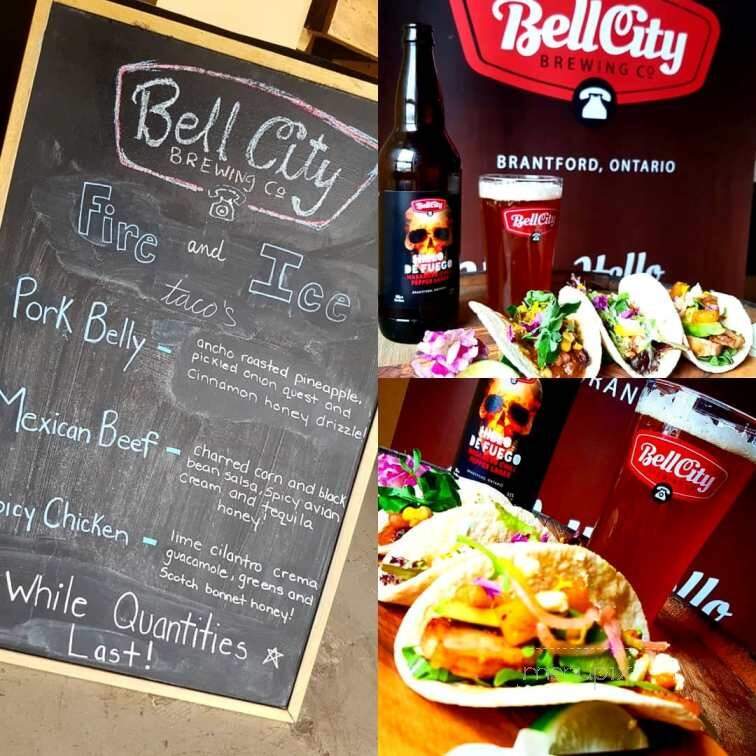 Bell City
BREWING Co
Fire and Ice
taco's
Pork Belly - ancho roasted pineapple,
pickled onion quest and
cinnamon honey drizzle!
Mexican Beef - charred corn and black
bean salsa, spicy avian
cream and tequila
honey!
picy Chicken - lime cilantro crema
guacamole, greens and
Scotch bonnet honey!
While Quantities
Last!
BellCity
BREWING Co
BRANTFORD, ONTARIO
Hello
BellCity
DE FUEGO
HABANERO
PEPPER LAGER
BellCity
RAN
DE FUEGO
PEPPER LAGER
BellCity
llo
menupix